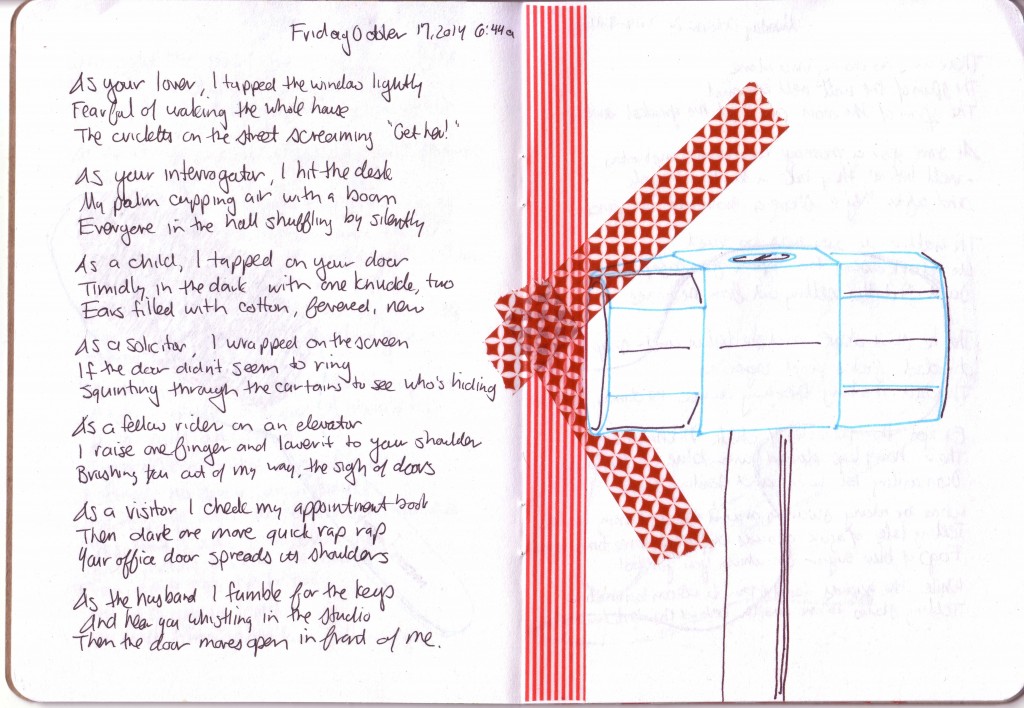 Friday October 17, 2014 6:44a
As your lover, I tapped the window lightly
Fearful of waking the whole house
The cricketts on the street screaming "Get her!"
As your interrogator, I hit the desk
My palm cupping air with a boom
Everyone in the hall shuffling by silently
As a child, I tapped on your door
Timidly in the dark with one knuckle, two
Ears filled with cotton, fevered, new
As a solicitor, I wrapped on the screen
If the door didn't seem to ring
Squinting through the curtains to see who's hiding
As a fellow rider on an elevator
I raise one finger and lower it to your shoulder
Brushing you out of my way, the sigh of doors
As a visitor I check my appointment book
Then dare one more quick rap rap
Your office door spreads its shoulders
As the husband I fumble for the keys
And hear you whistling in the studio
Then the door moves open in front of me.